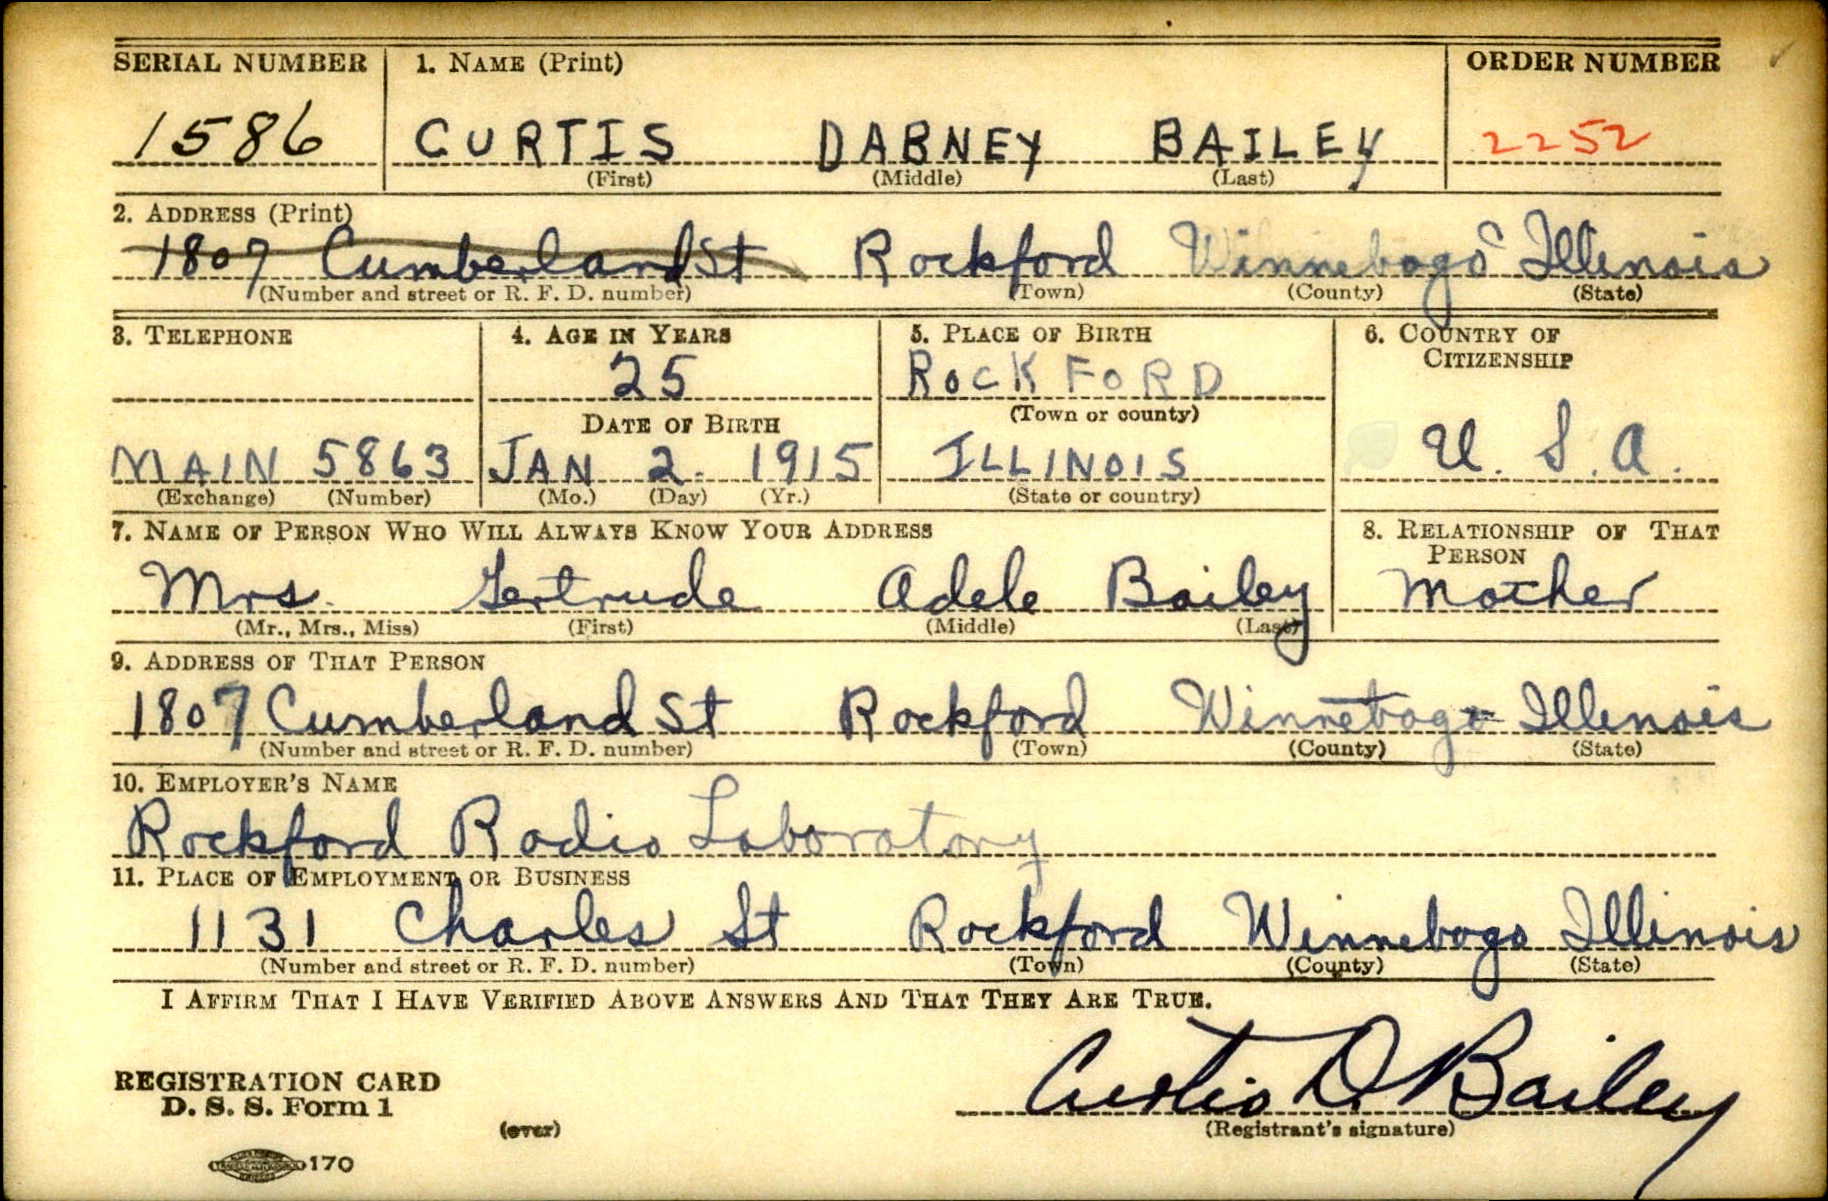 SERIAL NUMBER 1. NAME (Print) ORDER NUMBER
1586 CURTIS DABNEY BAILEY 2252
(First) (Middle) (Last)
2. ADDRESS (Print)
1807 Cumberland St Rockford Winnebago Illinois
(Number and street or R. F. D. number) (Town) (County) (State)
3. TELEPHONE 4. AGE IN YEARS 5. PLACE OF BIRTH 6. COUNTRY OF
CITIZENSHIP
25 ROCKFORD
DATE OF BIRTH (Town or county)
MAIN 5863 JAN 2. 1915 ILLINOIS U.S.A.
(Exchange) (Number) (Mo.) (Day) (Yr.) (State or country)
7. NAME OF PERSON WHO WILL ALWAYS KNOW YOUR ADDRESS 8. RELATIONSHIP OF THAT
PERSON
Mrs. Gertrude Adele Bailey Mother
(Mr., Mrs., Miss) (First) (Middle) (Last)
9. ADDRESS OF THAT PERSON
1807 Cumberland St Rockford Winnebago Illinois
(Number and street or R. F. D. number) (Town) (County) (State)
10. EMPLOYER'S NAME
Rockford Radio Laboratory
11. PLACE OF EMPLOYMENT OR BUSINESS
1131 Charles St Rockford Winnebago Illinois
(Number and street or R. F. D. number) (Town) (County) (State)
I AFFIRM THAT I HAVE VERIFIED ABOVE ANSWERS AND THAT THEY ARE TRUE.
REGISTRATION CARD
D. S. S. Form 1 Curtis D. Bailey
(over) (Registrant's signature)
170